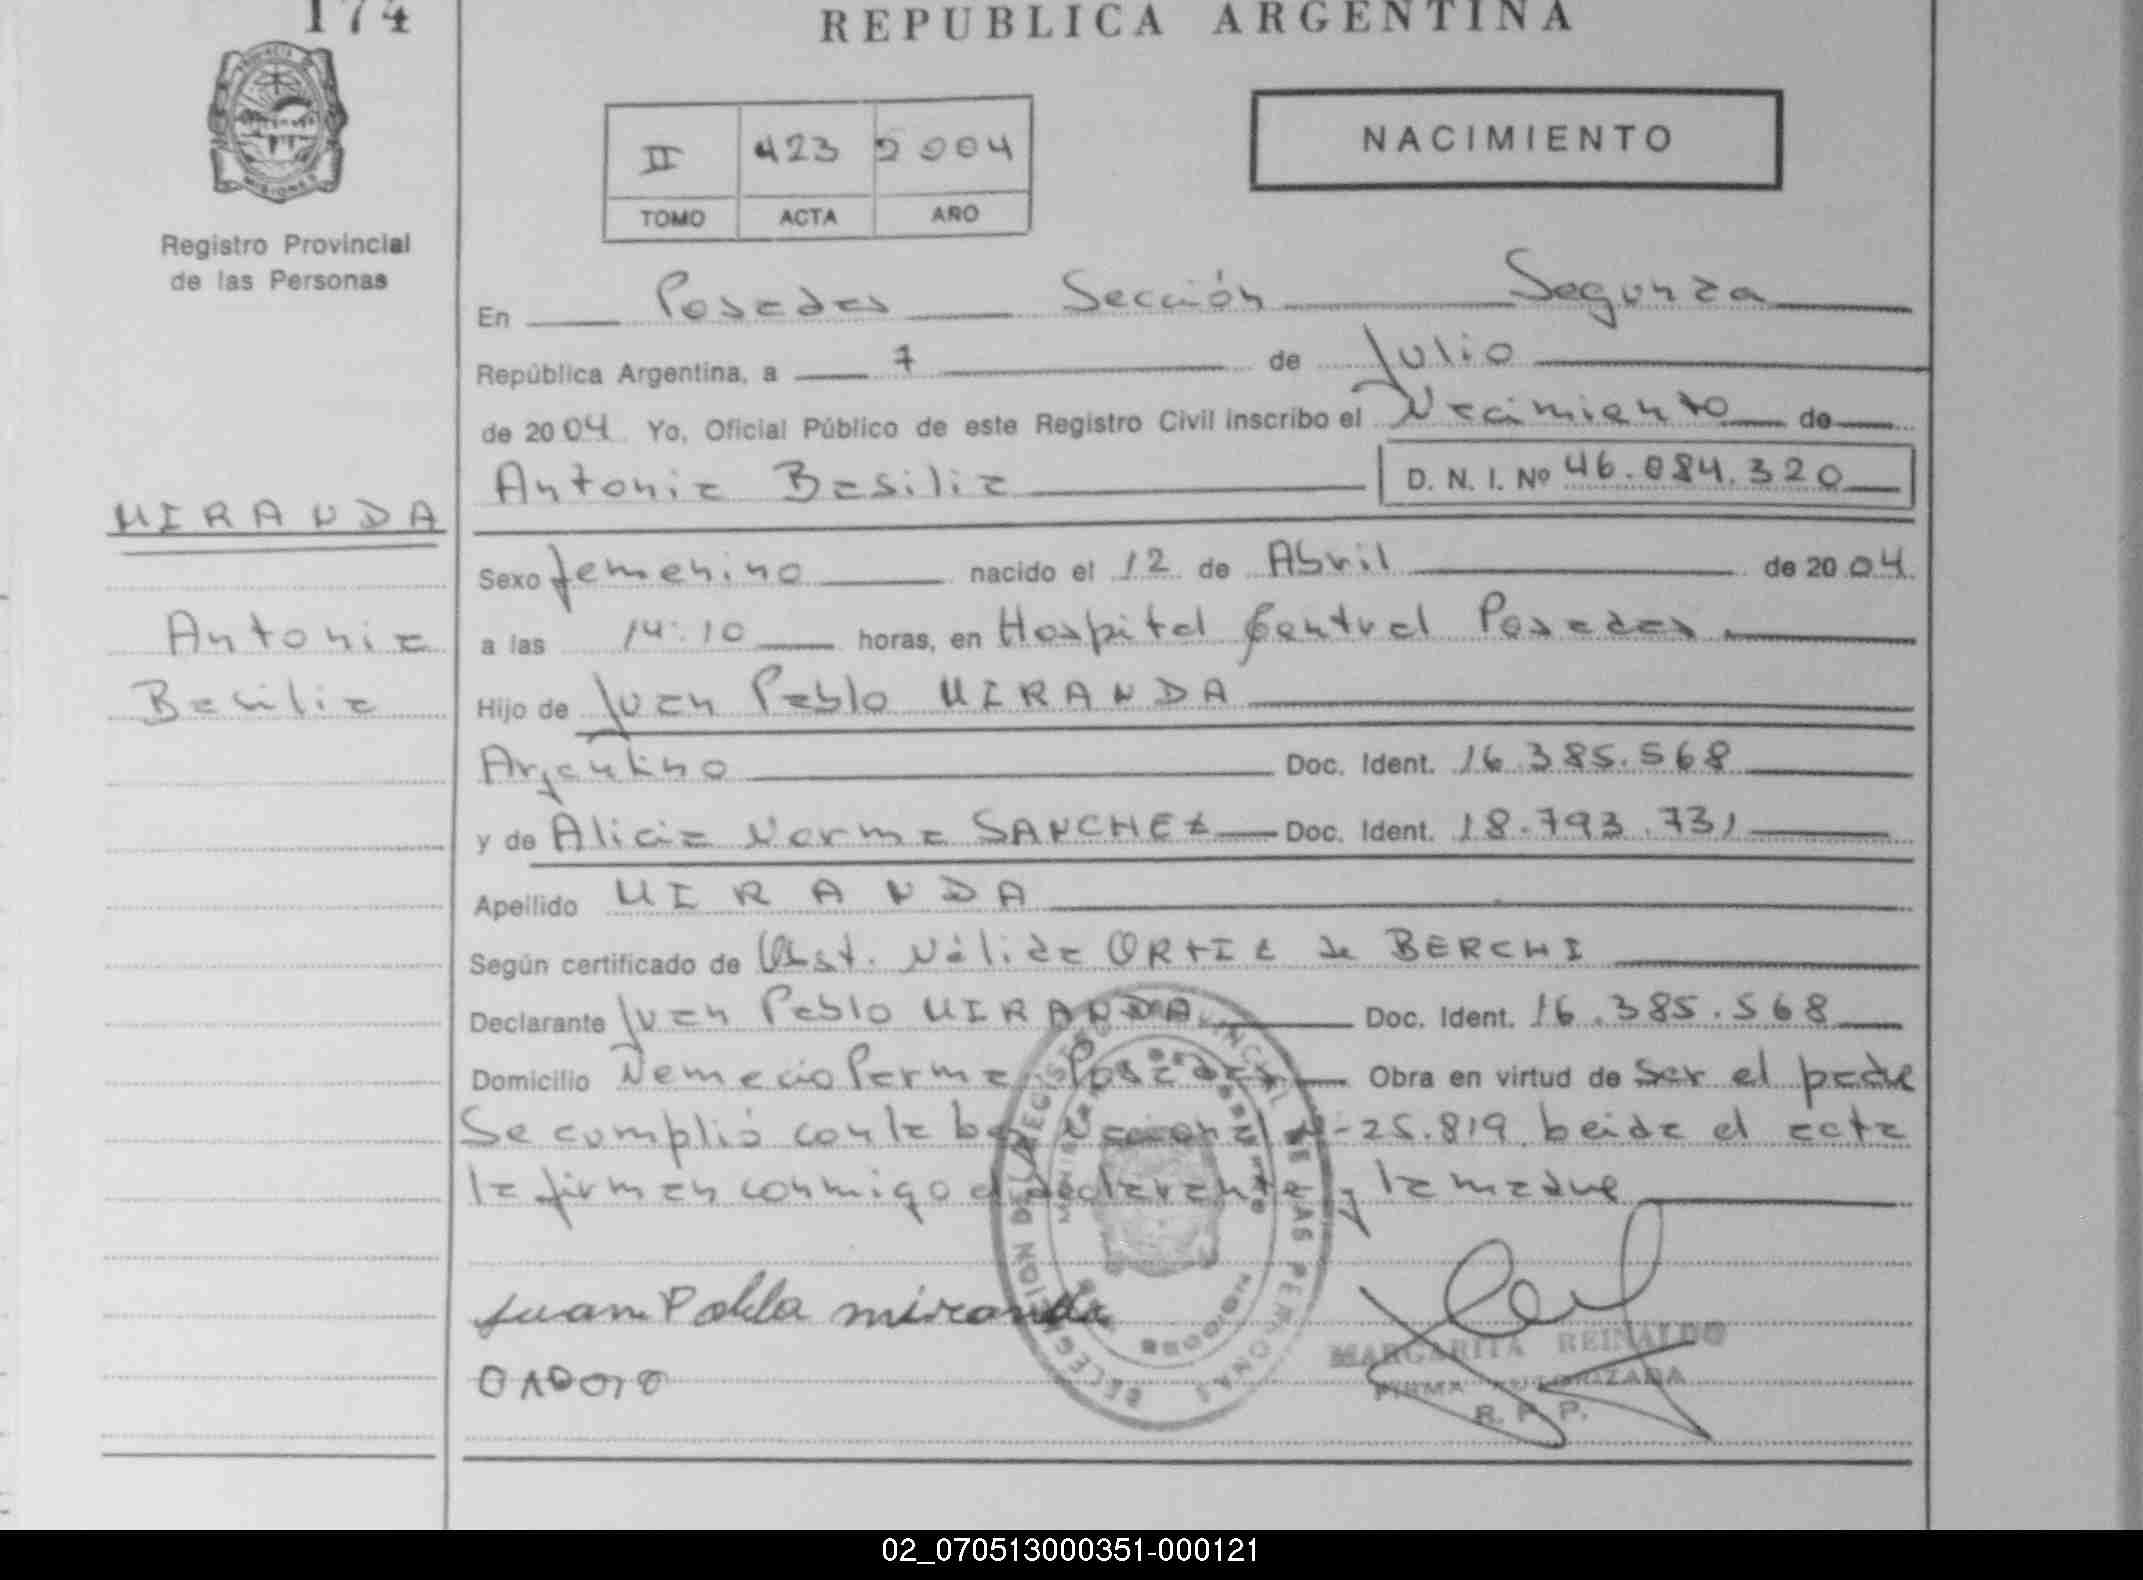 174
REPUBLICA ARGENTINA
PROVINCIA DE MISIONES
Registro Provincial
de las Personas
II 423 2004
TOMO ACTA AÑO
NACIMIENTO
En Posadas Sección Segunda
República Argentina, a 7 de Julio
de 2004 Yo, Oficial Público de este Registro Civil inscribo el Nacimiento de
Antonia Basilia D. N. I. Nº 46.084.320
MIRANDA
Antonia
Basilia
Sexo femenino nacido el 12 de Abril de 2004
a las 14:10 horas, en Hospital Central Posadas
Hijo de Juan Pablo MIRANDA
Argentino Doc. Ident. 16.385.568
y de Alicia Norma SANCHEZ Doc. Ident. 18.793.731
Apellido MIRANDA
Según certificado de Obst. Nélida ORTIZ de BERCHI
Declarante Juan Pablo MIRANDA Doc. Ident. 16.385.568
Domicilio Nemecio Parma Posadas Obra en virtud de ser el padre
Se cumplió con la Ley Nacional Nº 25.819. Leida el acta
la firman conmigo el declarante y la madre
DELEGACION DEL REGISTRO PROVINCIAL DE LAS PERSONAS
Juan Pablo miranda
MARGARITA REINALDO
FIRMA AUTORIZADA
R. P. P.
02_070513000351-000121